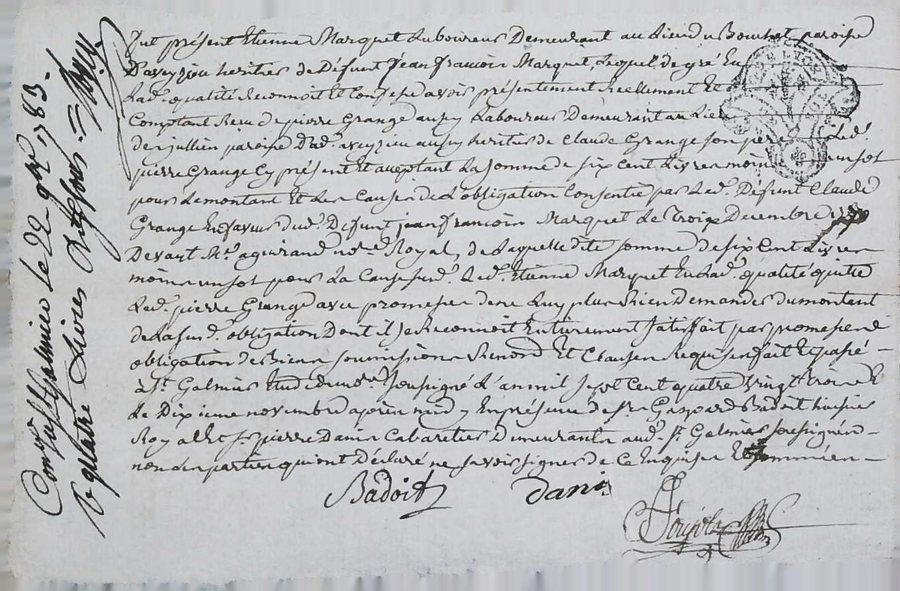 fut présent Etienne Marquet Laboureur Demeurant au Lieu du Bouchet paroisse
D'aveyzieu heritier de Défunt Jean francois Marquet, Lequel de gré En
Ladᵉ qualité Reconnoit Et Confesse avoir présentement Reellement Et
Comptant Reçu de pierre Grange aussy Laboureur Demeurant au Lieu
de jullien paroisse Dud. aveyzieu aussy heritier de Claude Grange son pere Led.
pierre Grange Cy présent Et acceptant La somme de six Cent Livres moins un sot
pour Le montant Et Les Causes de L'obligation Consentie par Led. Défunt Claude
Grange En faveur dud. Défunt jean francois Marquet Le Troize Decembre
Devant Mᵉ aguiraud noᵉ Royal, de Laquelle dite somme de six Cent Livres
moins un sot pour La Cause susdᵉ Led. Etienne Marquet En Ladᵉ qualité quitte
Led. pierre Grange avec promesse de ne Luy plus Rien Demander du montant
de La susdᵉ obligation Dont il se Reconnoit Entierement satisfait par promesse
obligation de Biens soumissions Renonᵈ Et Clauses Requises fait Et passé
à Sᵗ Galmier Etude du noʳᵉ soussigné L'an mil sept Cent quatre vingt trois Et
Le Dixieme novembre après midy En présence de sʳ Gaspard Badoit huissier
Royal Et sʳ pierre Danis Cabaretier Demeurants aud. Sᵗ Galmier soussignés
non Les parties qui ont Déclaré ne savoir signer de Ce Enquises Et sommées
Badoit Danis
Conᵉ à Sᵗ Galmier Le 22 9bʳᵉ 1783.
R quatre Livres dix sous